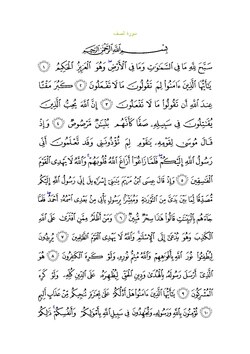 سورة الصف
بِسْمِ اللَّهِ الرَّحْمَٰنِ الرَّحِيمِ
سَبَّحَ لِلَّهِ مَا فِي السَّمَٰوَٰتِ وَمَا فِي الْأَرْضِ وَهُوَ الْعَزِيزُ الْحَكِيمُ ١
يَٰأَيُّهَا الَّذِينَ ءَامَنُوا لِمَ تَقُولُونَ مَا لَا تَفْعَلُونَ ٢ كَبُرَ مَقْتًا
عِندَ اللَّهِ أَن تَقُولُوا مَا لَا تَفْعَلُونَ ٣ إِنَّ اللَّهَ يُحِبُّ الَّذِينَ
يُقَٰتِلُونَ فِي سَبِيلِهِ صَفًّا كَأَنَّهُم بُنْيَٰنٌ مَّرْصُوصٌ ٤ وَإِذْ
قَالَ مُوسَىٰ لِقَوْمِهِ يَٰقَوْمِ لِمَ تُؤْذُونَنِي وَقَد تَّعْلَمُونَ أَنِّي
رَسُولُ اللَّهِ إِلَيْكُمْ فَلَمَّا زَاغُوا أَزَاغَ اللَّهُ قُلُوبَهُمْ وَاللَّهُ لَا يَهْدِي الْقَوْمَ
الْفَٰسِقِينَ ٥ وَإِذْ قَالَ عِيسَى ابْنُ مَرْيَمَ يَٰبَنِي إِسْرَٰءِيلَ إِنِّي رَسُولُ اللَّهِ إِلَيْكُم
مُّصَدِّقًا لِّمَا بَيْنَ يَدَيَّ مِنَ التَّوْرَىٰةِ وَمُبَشِّرًا بِرَسُولٍ يَأْتِي مِن بَعْدِي اسْمُهُ أَحْمَدُ فَلَمَّا
جَاءَهُم بِالْبَيِّنَٰتِ قَالُوا هَٰذَا سِحْرٌ مُّبِينٌ ٦ وَمَنْ أَظْلَمُ مِمَّنِ افْتَرَىٰ عَلَى اللَّهِ
الْكَذِبَ وَهُوَ يُدْعَىٰ إِلَى الْإِسْلَٰمِ وَاللَّهُ لَا يَهْدِي الْقَوْمَ الظَّٰلِمِينَ ٧ يُرِيدُونَ
لِيُطْفِئُوا نُورَ اللَّهِ بِأَفْوَٰهِهِمْ وَاللَّهُ مُتِمُّ نُورِهِ وَلَوْ كَرِهَ الْكَٰفِرُونَ ٨ هُوَ
الَّذِي أَرْسَلَ رَسُولَهُ بِالْهُدَىٰ وَدِينِ الْحَقِّ لِيُظْهِرَهُ عَلَى الدِّينِ كُلِّهِ وَلَوْ كَرِهَ
الْمُشْرِكُونَ ٩ يَٰأَيُّهَا الَّذِينَ ءَامَنُوا هَلْ أَدُلُّكُمْ عَلَىٰ تِجَٰرَةٍ تُنجِيكُم مِّنْ عَذَابٍ أَلِيمٍ
١٠ تُؤْمِنُونَ بِاللَّهِ وَرَسُولِهِ وَتُجَٰهِدُونَ فِي سَبِيلِ اللَّهِ بِأَمْوَٰلِكُمْ وَأَنفُسِكُمْ ذَٰلِكُمْ